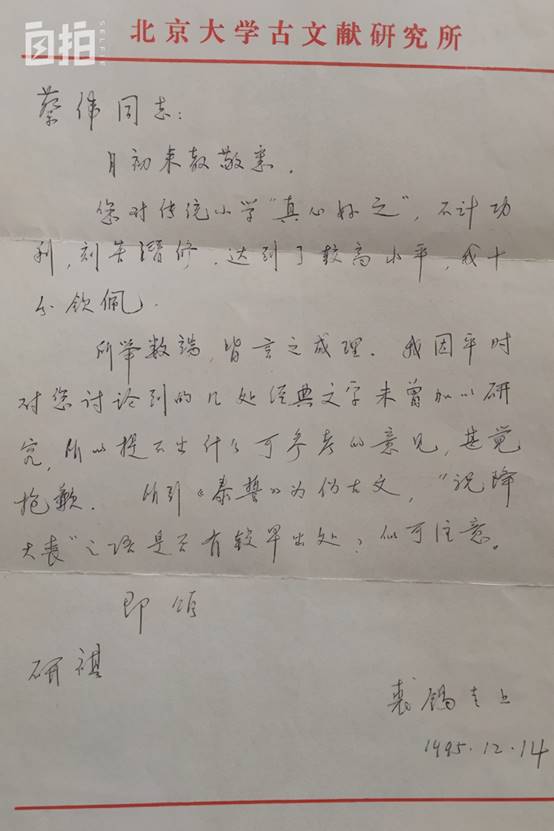 自拍
SELFIE
北京大学古文献研究所
蔡伟同志:
月初来教敬悉.
您对传统小学“真心好之”, 不计功
利, 刻苦潜修, 达到了较高水平, 我十
分钦佩.
所举数端, 皆言之成理. 我因平时
对您讨论到的几处经典文字未曾加以研
究, 所以提不出什么可参考的意见, 甚觉
抱歉. 所引《泰誓》为伪古文, “祝降
大丧”之语是否有较早出处, 似可注意。
即颂
研祺
裘锡圭上
1995.12.14